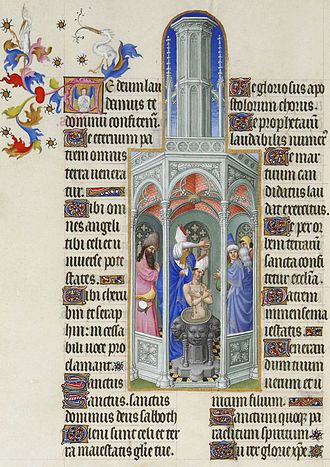 Te deum lau
damus te
dominū confitem̄.
Te eternum pa
trem omnis
terra venera
tur.
Tibi omnes
angeli
tibi celi et u
niverse pote
states.
Tibi cheru
bin et serap
hin: incessa
bili voce pro
clamant.
Sanctus
Sanctus. sanctus
dominus deus sabaoth
Pleni sunt celi et ter
ra maiestatis glīe tue.
Te gloriosus apo
stolorum chorus.
Te prophetarū
laudabilis numer
Te mar
tirum can
didatus lau
dat exercitus.
Te per or
bem terrarum
sancta confi
tetur ecclīa.
Patrem
immense ma
iestatis.
Veneran
dum tuum
verum et u
nicum filium.
Sanctum quoqꝫ pa
raclitum spiritum.
Tu rex glorie xp̄e.